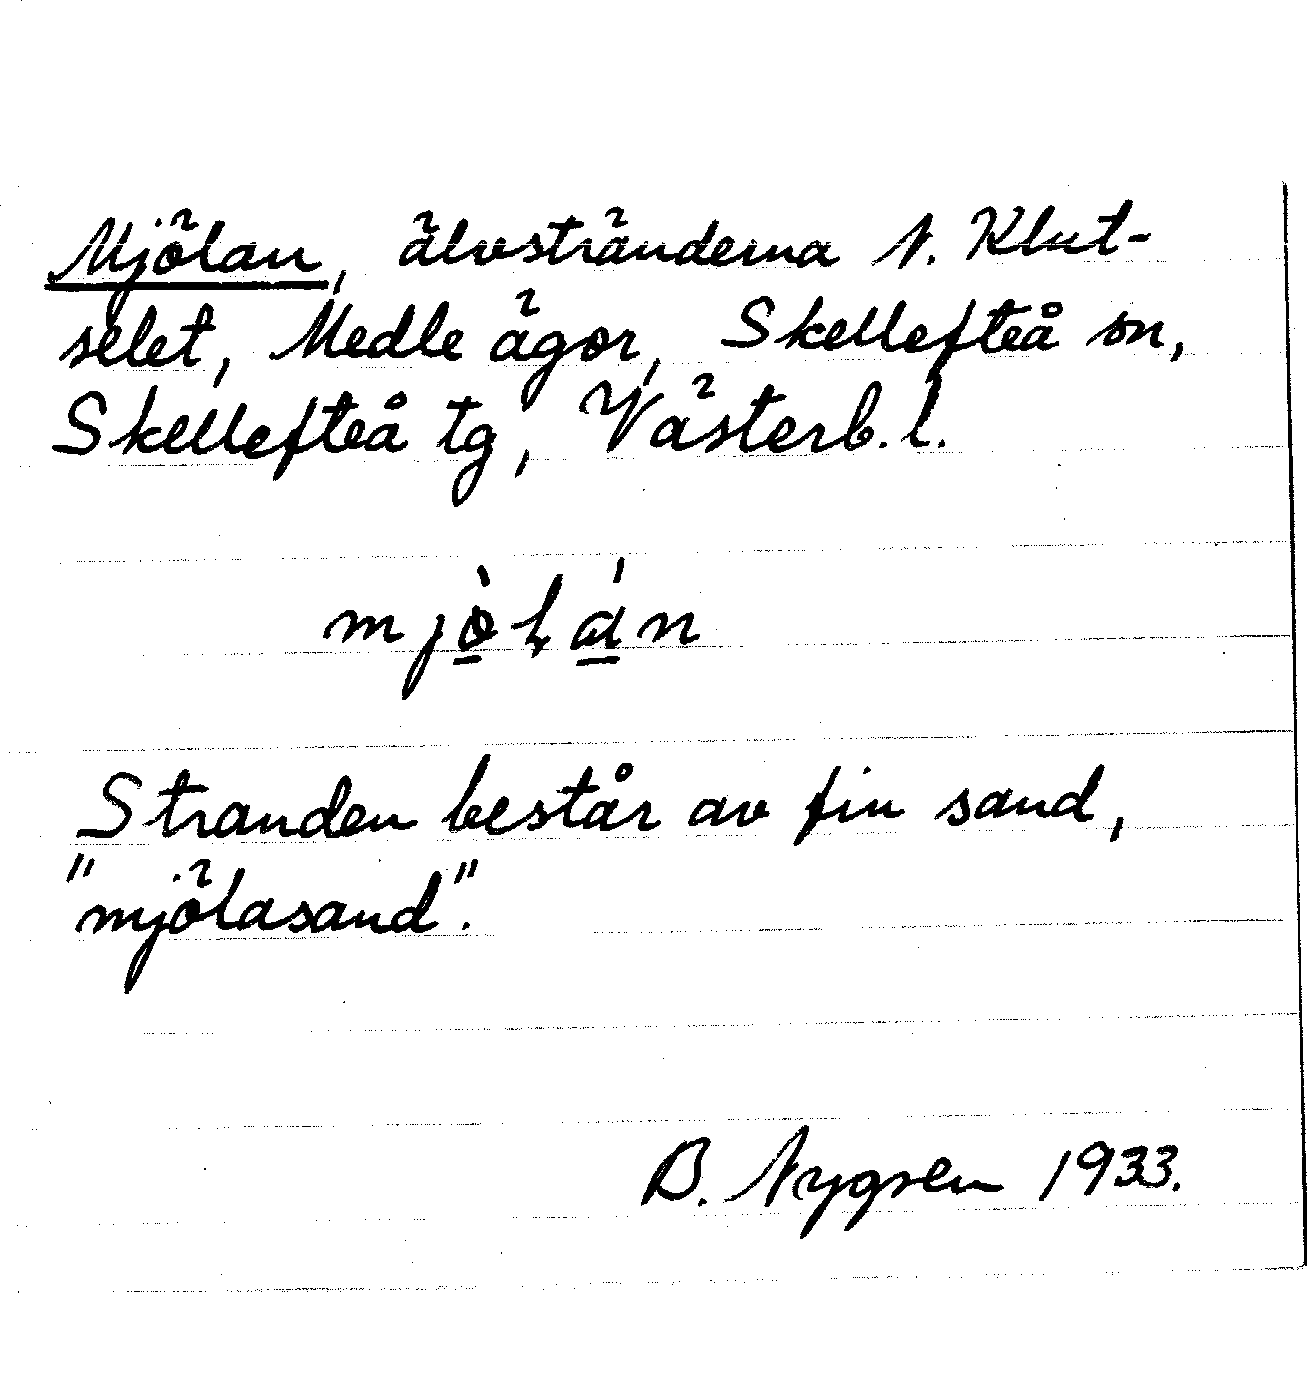 Mjölan, älvstränderna N. Klut-
selet, Medle ägor, Skellefteå sn,
Skellefteå tg, Västerb. l.
mjò̱ɫá̱n
Stranden består av fin sand,
"mjölasand".
B. Nygren 1933.